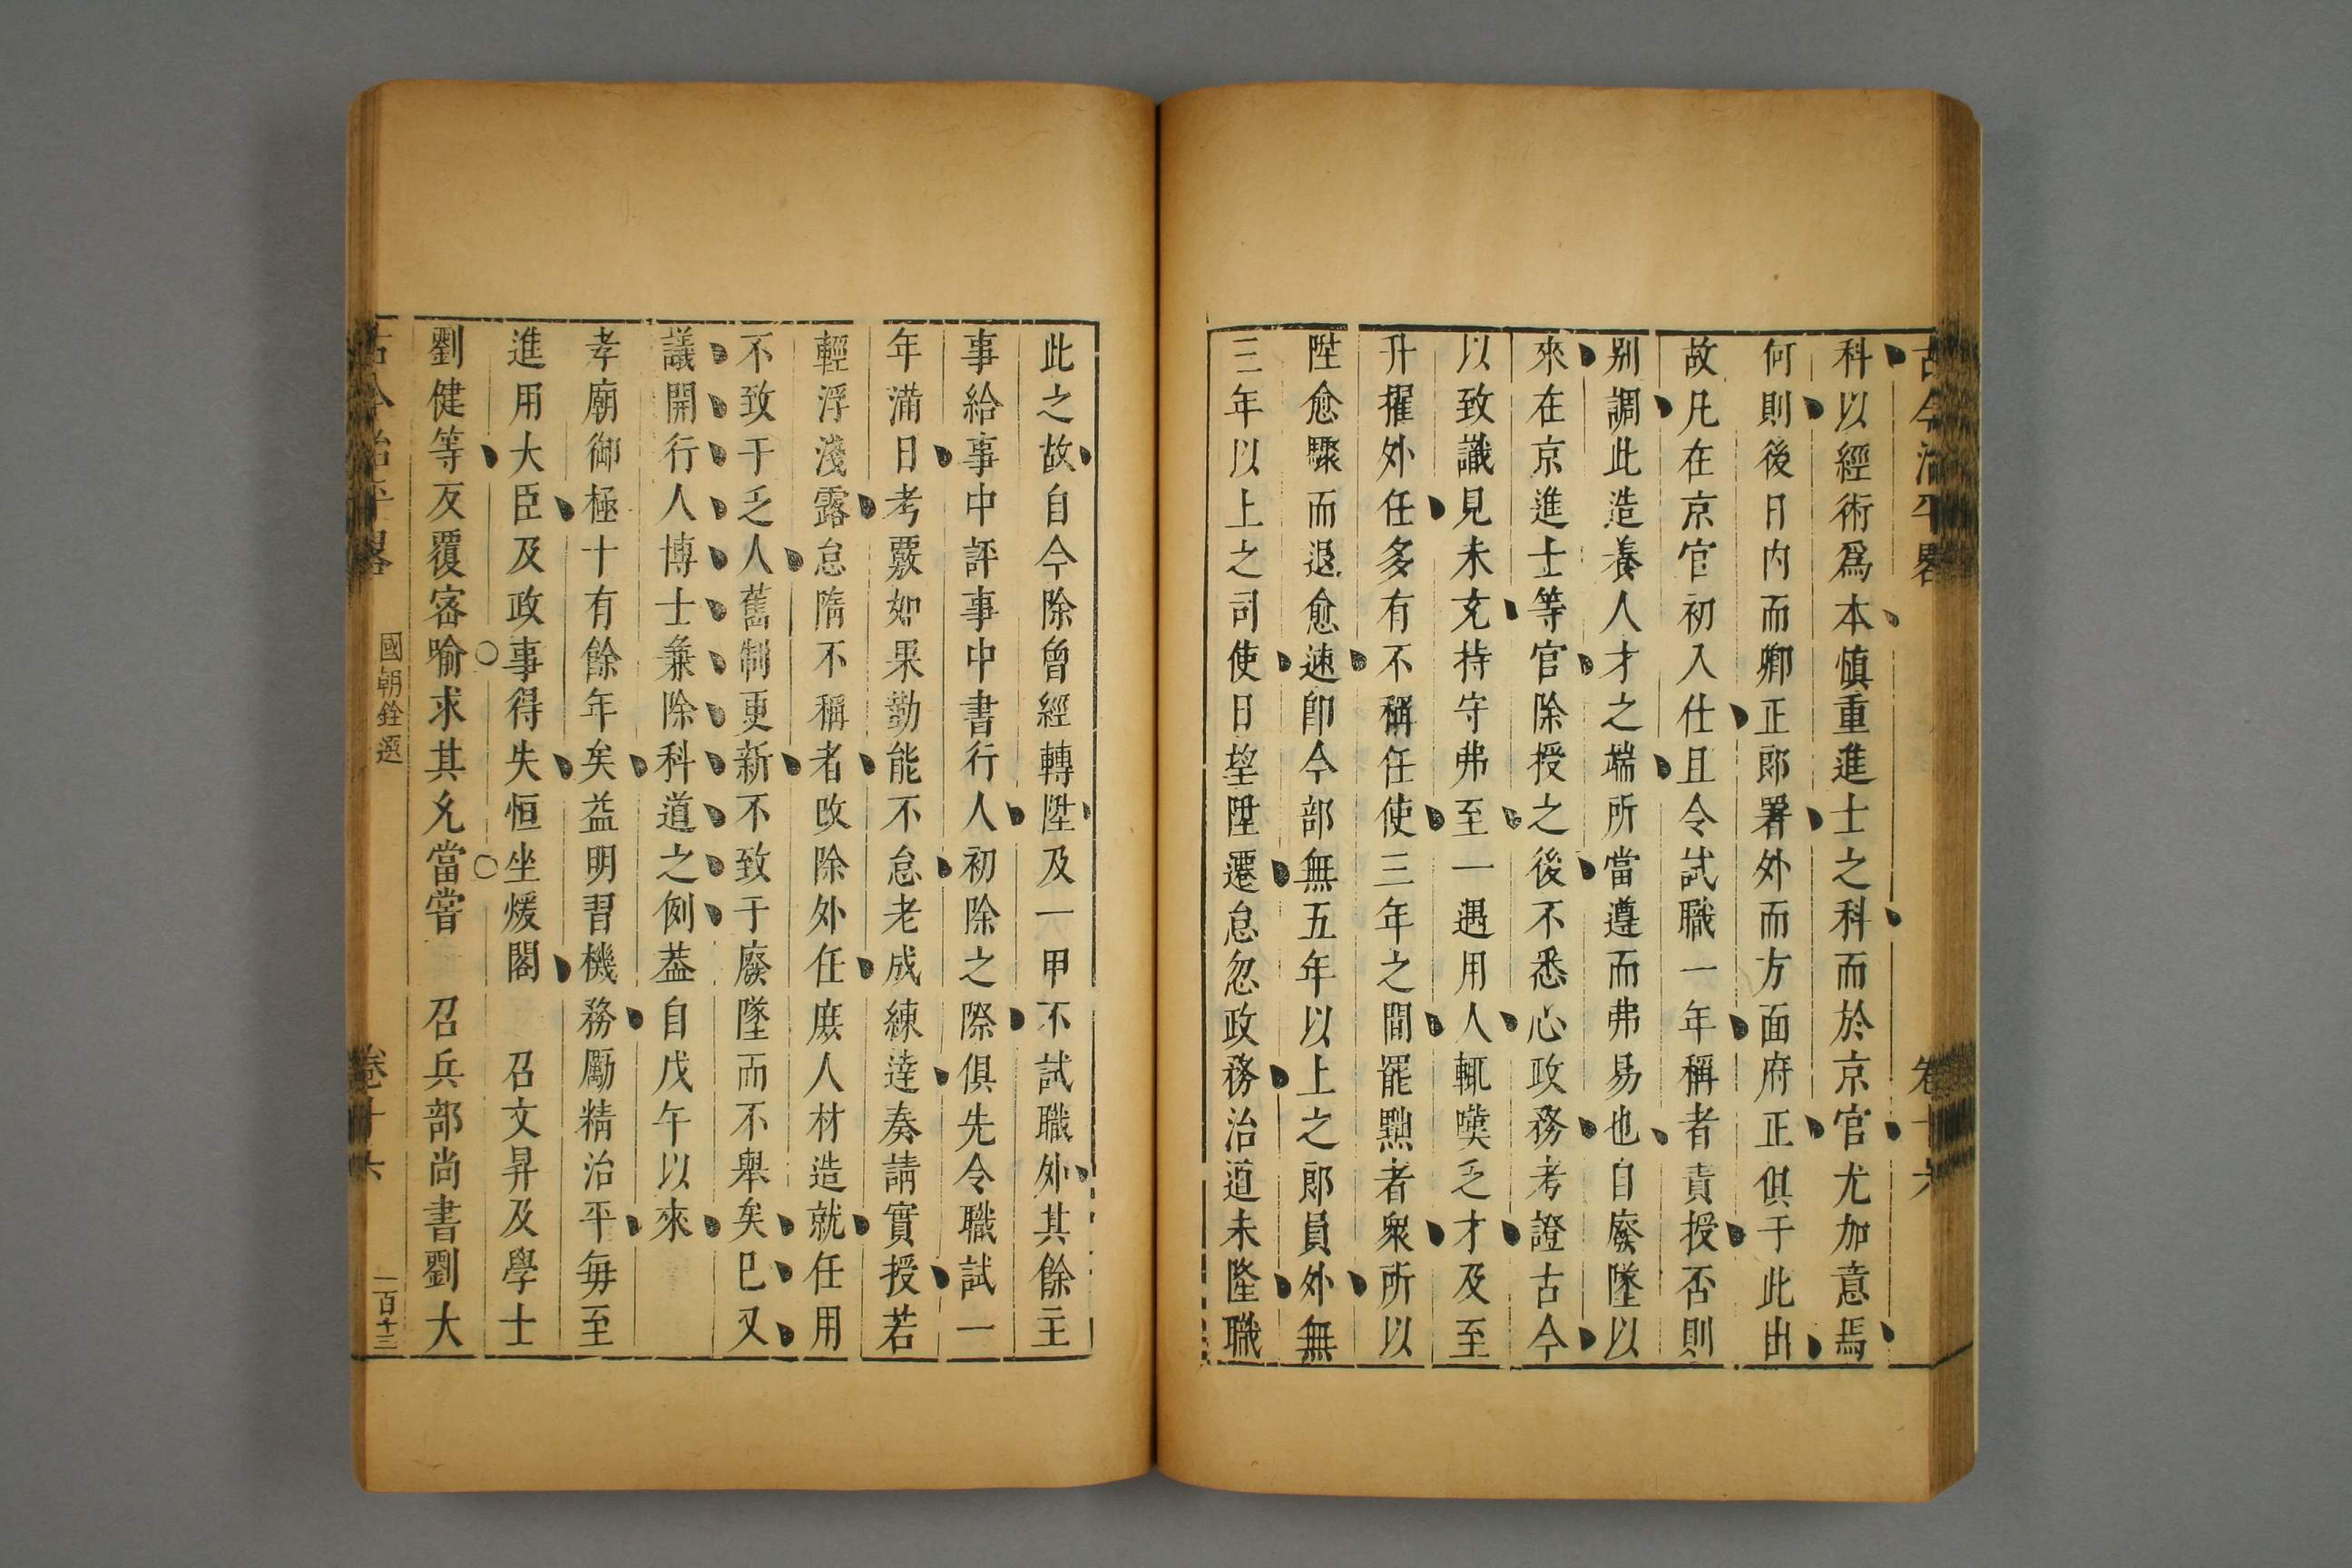 古今治平畧 卷十六
科以經術爲本慎重進士之科而於京官尤加意焉
何則後日内而卿正郎署外而方面府正俱于此出
故凡在京官初入仕且令試職一年稱者責授否則
别調此造養人才之端所當遵而弗易也自廢墜以
來在京進士等官除授之後不悉心政務考證古今
以致識見未充持守弗至一遇用人輒嘆乏才及至
升擢外任多有不稱任使三年之間罷黜者衆所以
陞愈驟而退愈速卽今部無五年以上之郎員外無
三年以上之司使日望陞遷怠忽政務治道未隆職
此之故自今除曾經轉陞及一甲不試職外其餘主
事給事中評事中書行人初除之際俱先令職試一
年滿日考覈如果勤能不怠老成練達奏請實授若
輕浮淺露怠隋不稱者改除外任庶人材造就任用
不致于乏人舊制更新不致于廢墜而不舉矣已又
議開行人博士兼除科道之例葢自戊午以來
孝廟御極十有餘年矣益明習機務勵精治平毎至
進用大臣及政事得失恒坐煖閣 召文昇及學士
劉健等反覆宻喻求其允當嘗 召兵部尚書劉大
古今治平畧 國朝銓選 卷十六 一百十三